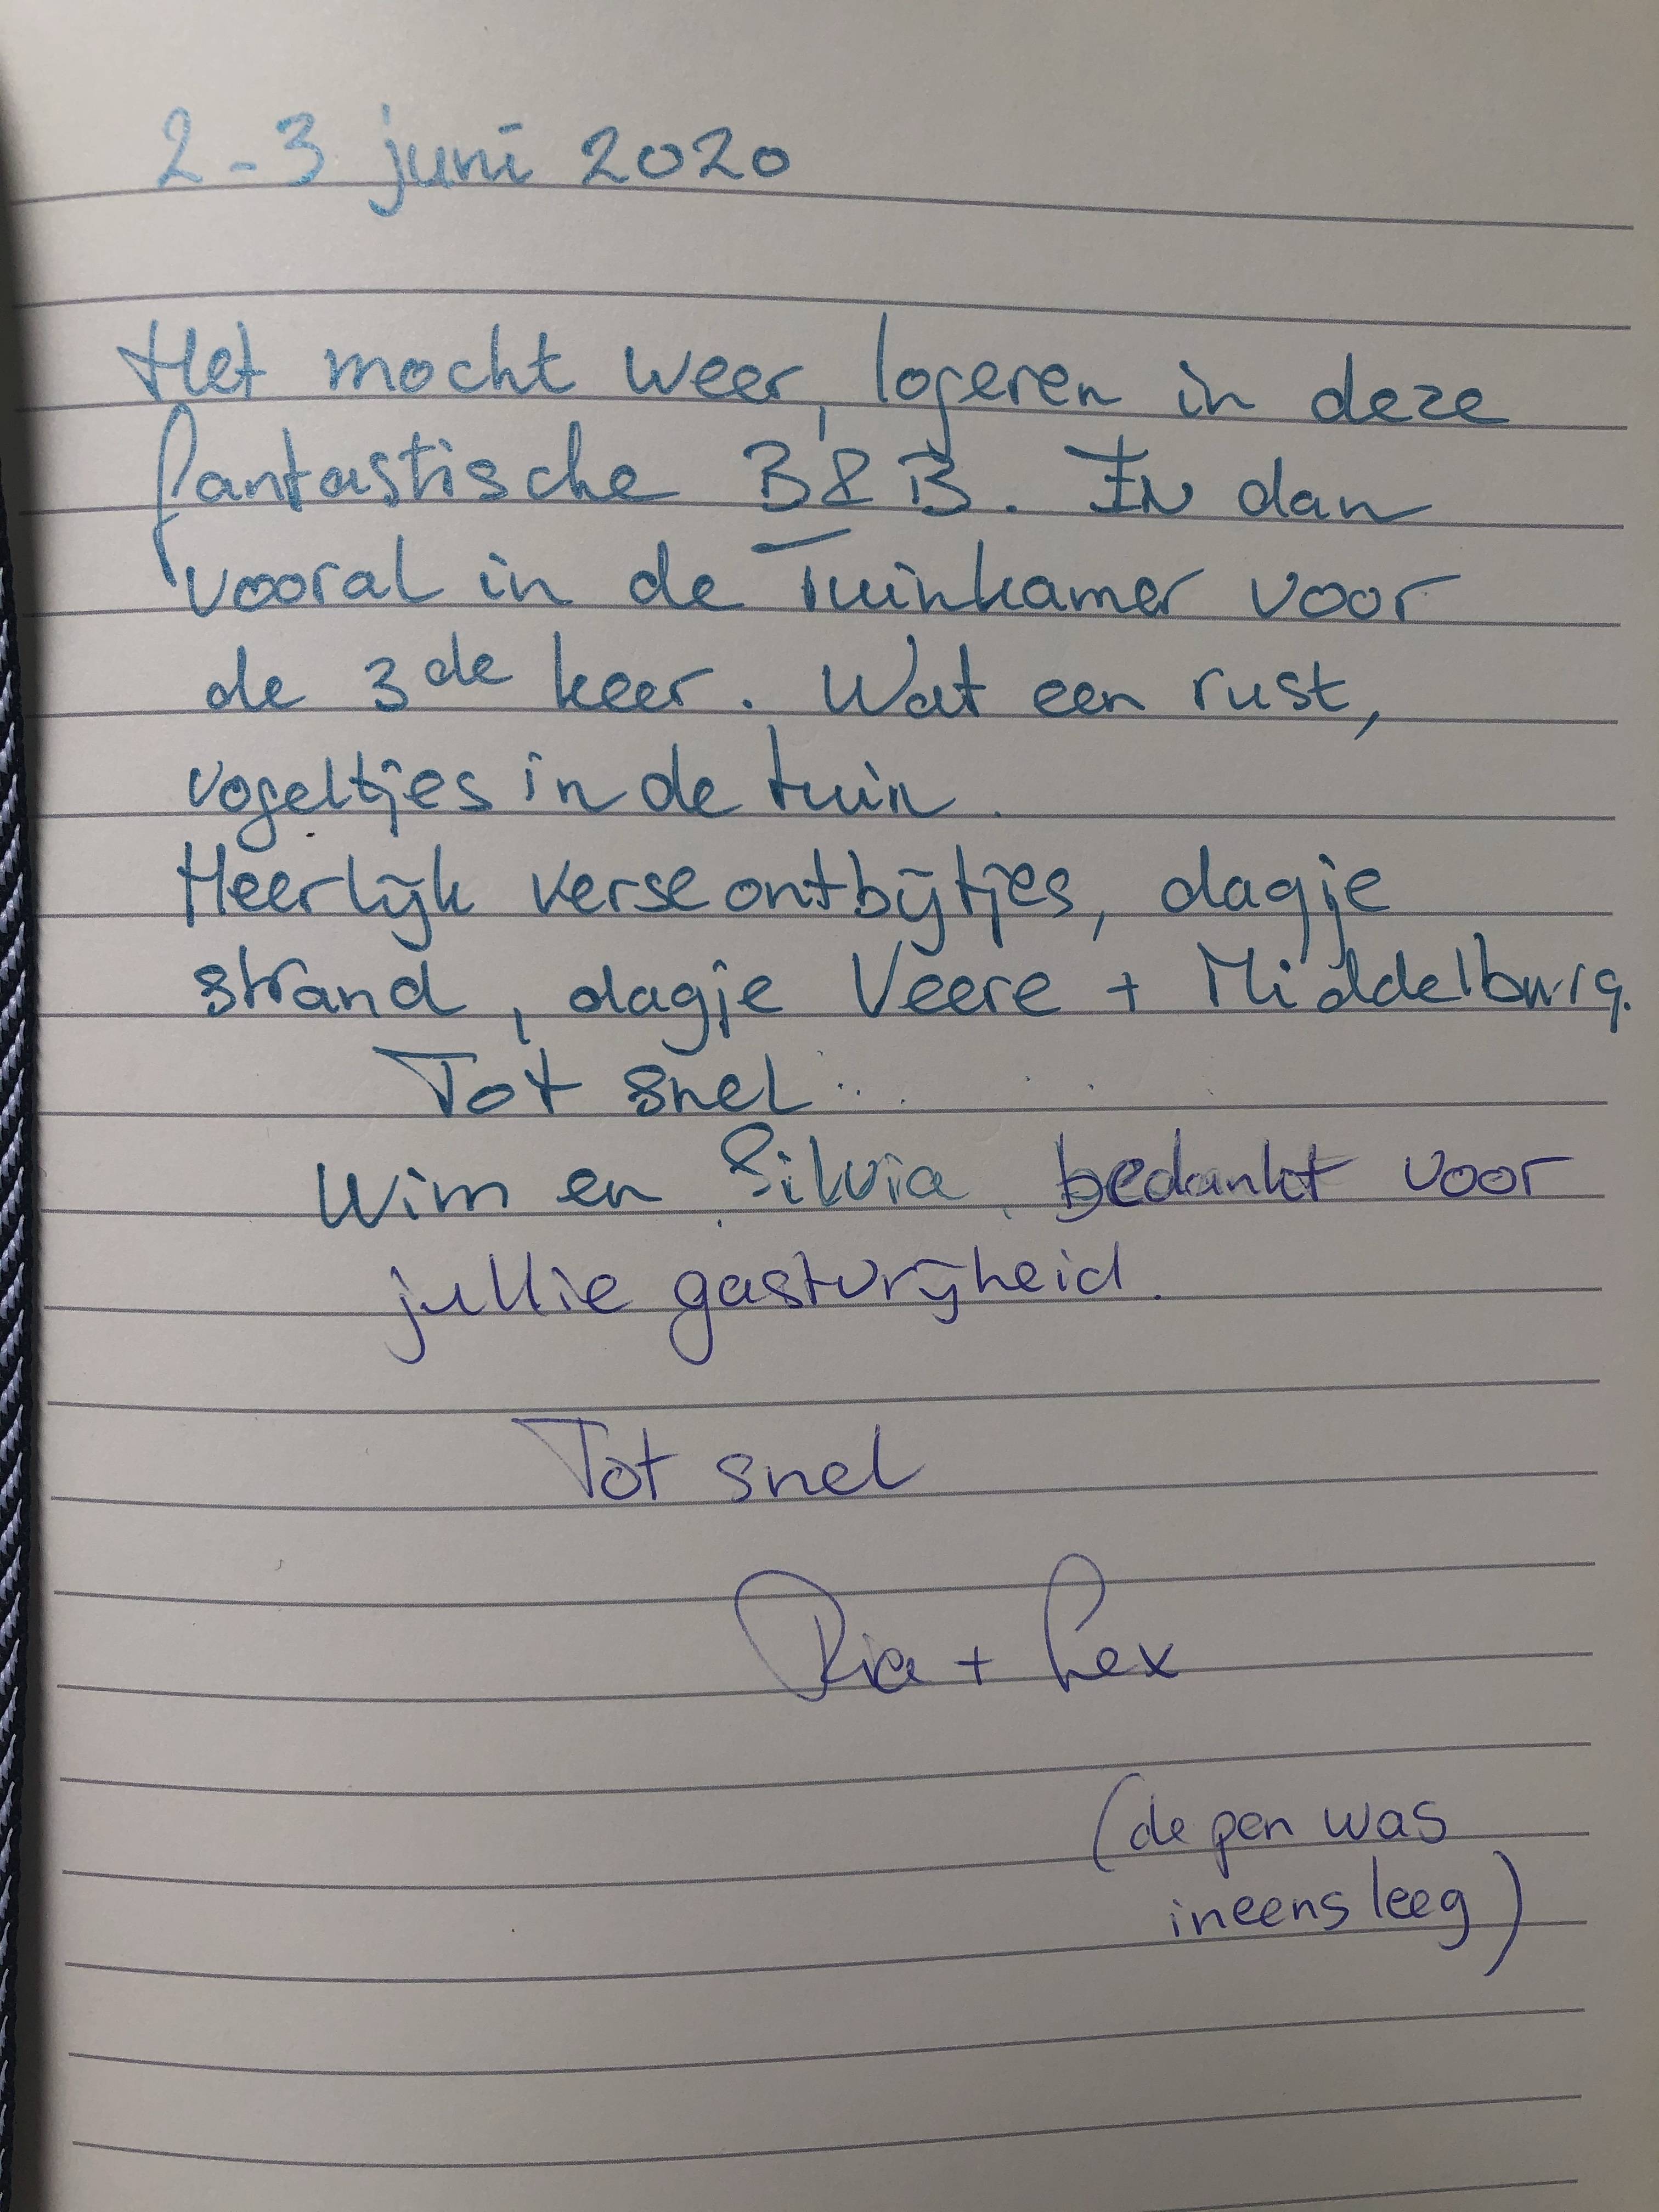 2-3 juni 2020
Het mocht weer, logeren in deze
fantastische B&B. En dan
vooral in de Tuinkamer voor
de 3de keer. Wat een rust,
vogeltjes in de tuin.
Heerlijk verse ontbijtjes, dagje
strand, dagje Veere + Middelburg.
Tot snel..
Wim en Silvia, bedankt voor
jullie gastvrijheid.
Tot snel
Ria + Lex
(de pen was
ineens leeg)